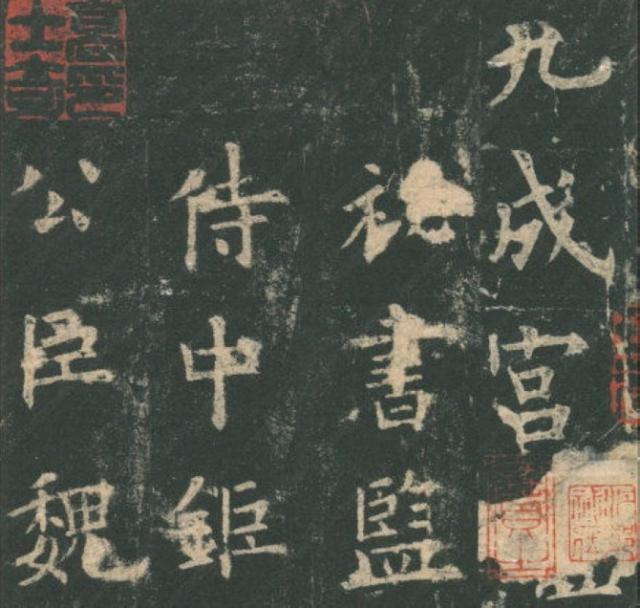 九成宮
書監
侍中鉅
公臣魏